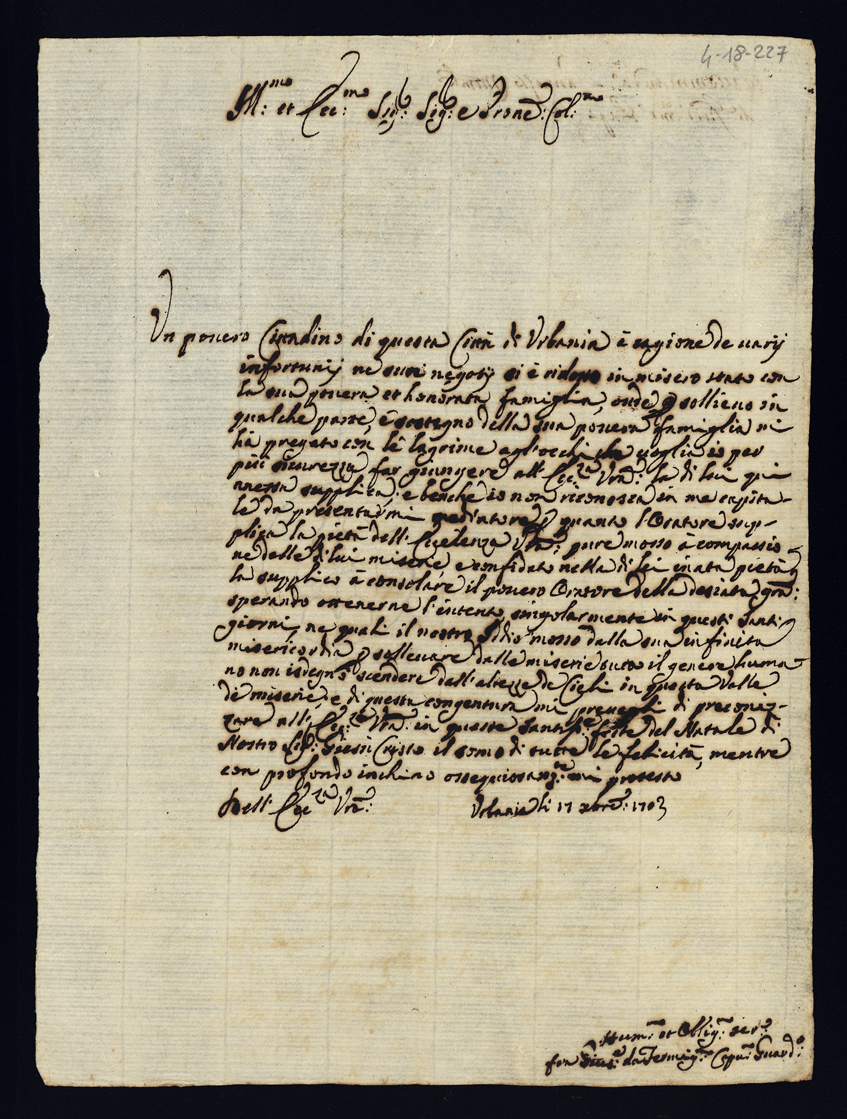 4-18-227
Ill:mo et Ecc:mo Sig:r Sig:r e Prone: Col:mo
Un povero Cittadino di questa Città di Urbania à cagione de varij
infortunij ne suoi negotij si è ridotto in misero stato con
la sua povera et honorata famiglia, onde p sollievo in
qualche parte, e sostegno della sua povera famiglia mi
hà pregato con le lagrime agl'occhi che voglia io per
più sicurezza far giungere all' Ecc:za Vra: la di lui qui
anessa supplica, e benche io non riconosca in me capita-
le da presentarmi mediatore p quanto l'Oratore sup-
plica la pietà dell' Eccelenza Vra: pure mosso à compassio-
ne delle di lui miserie, e confidato nella di lei inata pietà
la supplico à consolare il povero Oratore della desiata gra:
sperando ottenerne l'intento singolarmente in questi Santi
giorni, ne quali il nostro Iddio mosso dalla sua infinita
misericordia p sollevare dalle miserie tutto il genere huma-
no non isdegnò scendere dall'altezze de Cieli in questa Valle
de miserie, e di questa congentura mi prevaglio di preconiz-
zare all' Ecc:za Vra: in queste Santiss:e feste del Natale di
Nostro Sig:r Giesù Cristo il somo di tutte le felicità, mentre
con profondo inchino ossequiosam:te mi protesto
Dell' Ecc:za Vra: Urbania li 17 xbre: 1703
Hum:mo et Oblig:mo ser:e
fra da Fermig:no Capu:no Guard:o